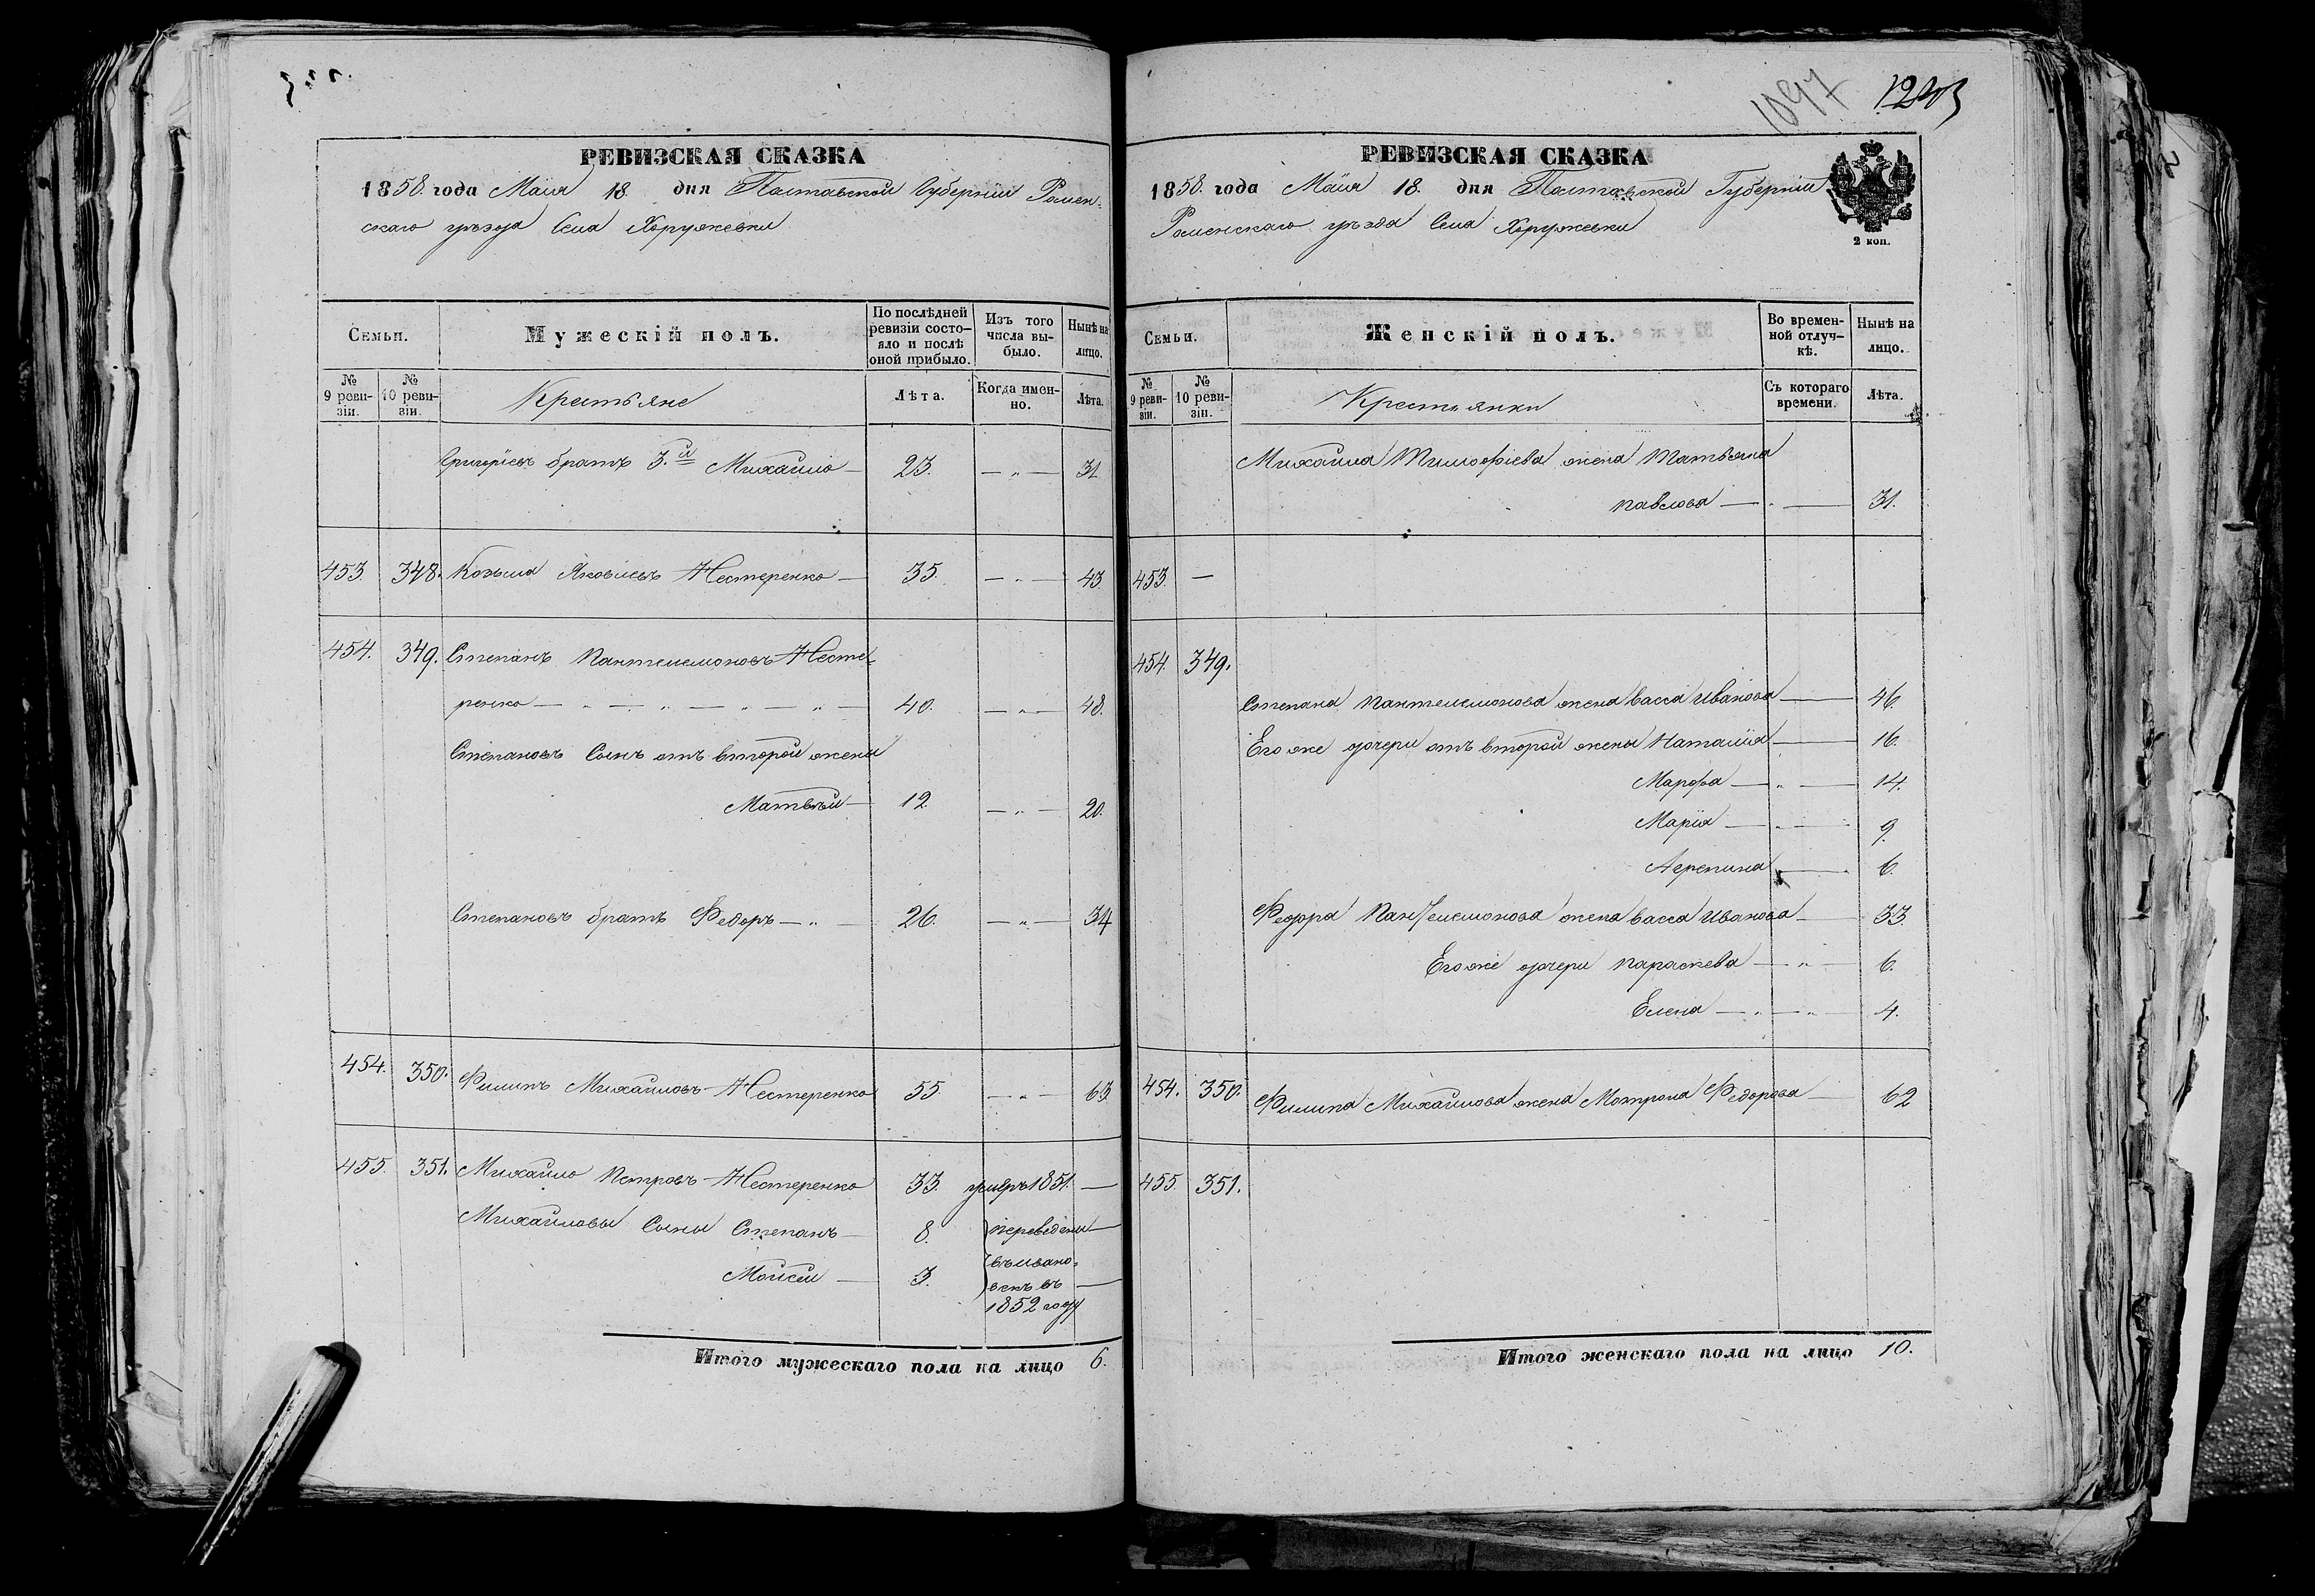 РЕВИЗСКАЯ СКАЗКА
1858. года Маія 18. дня Полтавской Губерніи Ромен-
скаго уѣзда Села Хоружевки
Семьи.
Мужескій полъ.
По послѣдней ревизіи состояло и послѣ оной прибыло.
Изъ того числа выбыло.
Нынѣ на лицо.
№ 9 ревизіи.
№ 10 ревизіи.
Крестьяне
Лѣта.
Когда именно.
Лѣта.
Григоріевъ братъ 3.й Михайло — 23. — " — 31
453. 348. Козьма Яковлевъ Нестеренко — 35. — " — 43.
454. 349. Степанъ Пантелемоновъ Несте-
ренко — " — " — " — " — 40. — " — 48.
Степановъ Сынъ отъ второй жены
Матвѣй — 12. — " — 20.
Степановъ братъ Федоръ — " — 26. — " — 34
454. 350. Филипъ Михайловъ Нестеренко 55. — " — 63.
455. 351. Михайло Петровъ Нестеренко 33. умеръ 1851. —
Михайловы Сыны Степанъ — 8. переведены —
Мойсей — 3. въ Ивано-
векъ въ —
1852 году
Итого мужескаго пола на лицо 6.
1097 1203
РЕВИЗСКАЯ СКАЗКА
1858. года Маія 18. дня Полтавской Губерніи
Роменскаго уѣзда Села Хоружевки
2 коп.
Семьи.
Женскій полъ.
Во временной отлучкѣ.
Нынѣ на лицо.
№ 9 ревизіи.
№ 10 ревизіи.
Крестьянки
Съ котораго времени.
Лѣта.
Михайла Тимофіева жена Татьяна
павлова — " — 31.
453. —
454. 349.
Степана Пантелемонова жена Васса Иванова — 46.
Его же дочери отъ второй жены Наталія — 16.
Марфа — " — 14.
Марія — " — 9.
Агрепина — 6.
Федора Пантелемонова жена Васса Иванова — 33.
Его же дочери Параскева — " — 6.
Елена — " — " — 4.
454. 350. Филипа Михайлова жена Мотрона Федорова — 62
455. 351.
Итого женскаго пола на лицо 10.